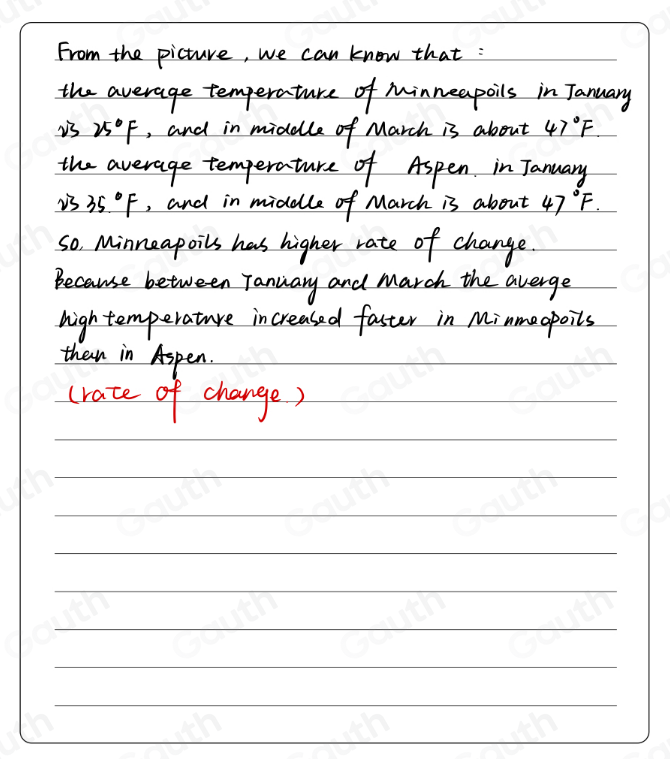 From the picture, we can know that:
the average temperature of Minneapoils in January
is 25°F, and in middle of March is about 47°F.
the average temperature of Aspen in January
is 35°F, and in middle of March is about 47°F.
so, Minneapoils has higher rate of change.
Because between January and March the averge
high temperature increased faster in Minneapoils
than in Aspen.
(rate of change.)